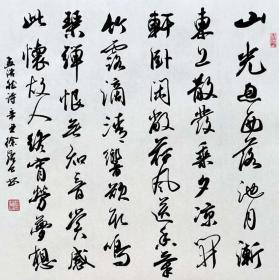 山光忽西落池月漸
東上散發乘夕凉開
軒卧閑敞荷風送香氣
竹露滴清響欲取鳴
琴彈恨無知音賞感
此懷故人終宵勞夢想
孟浩然詩辛丑徐